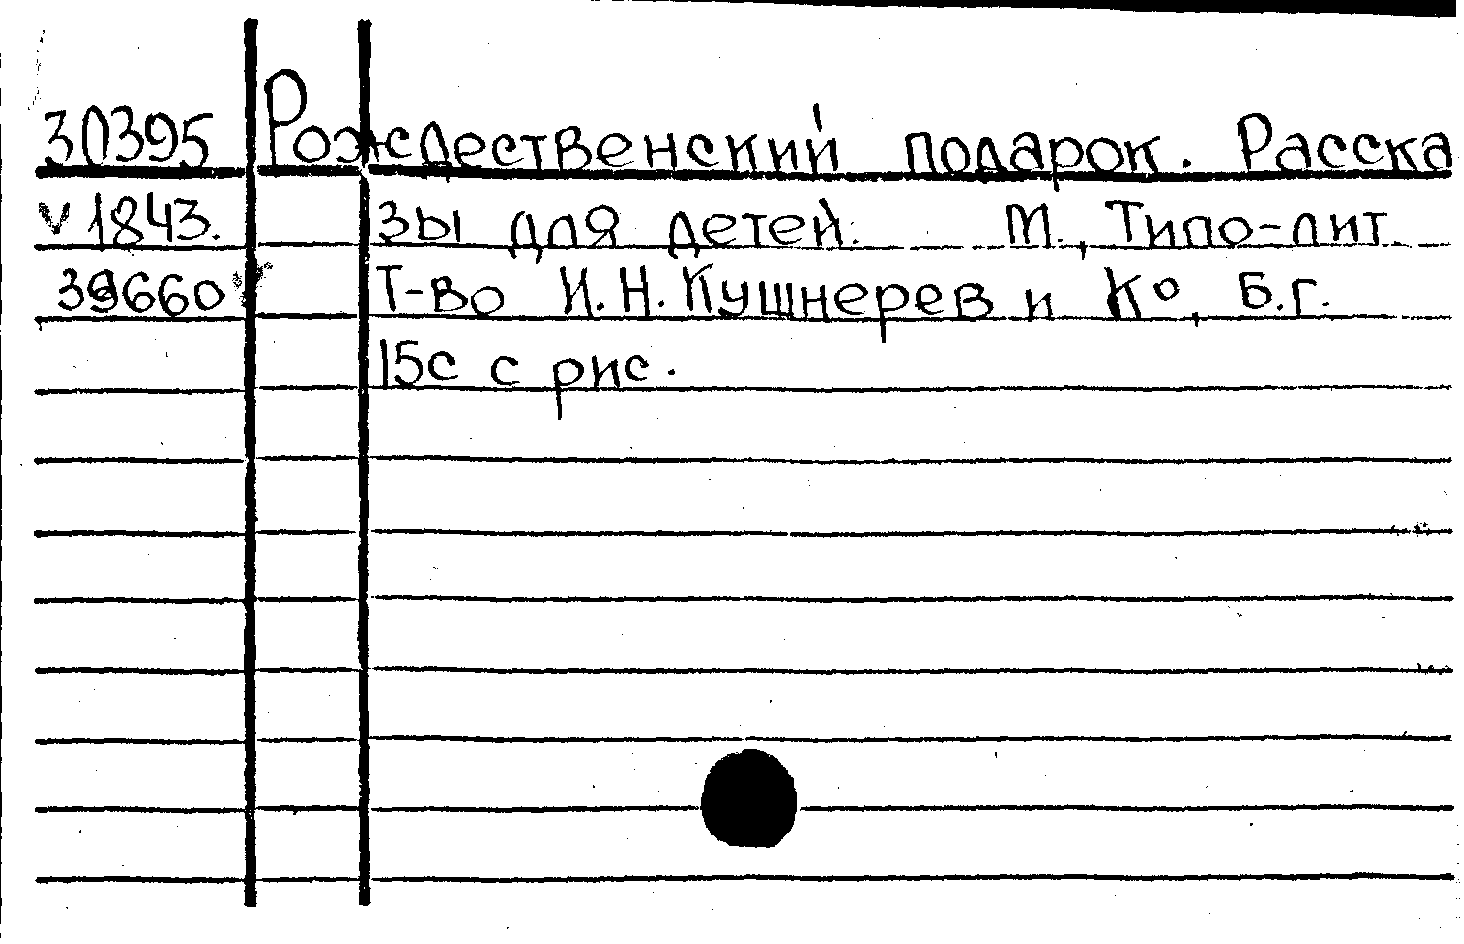 30395 Рождественский подарок. Расска
v 1843. зы для детей. М., Типо-лит.
39660 v Т-во И.Н. Кушнерев и Ко, б.г.
15с с рис.